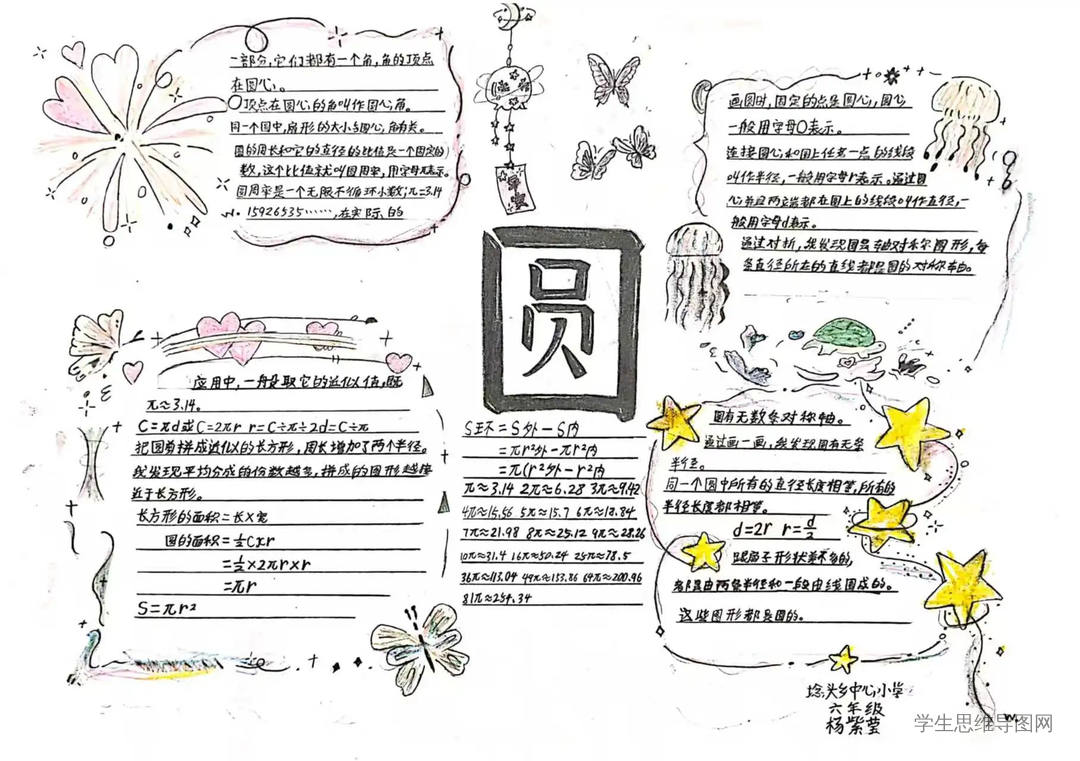 一部分，它们都有一个角，角的顶点
在圆心。
顶点在圆心的角叫作圆心角。
同一个圆中，扇形的大小与圆心角有关。
圆的周长和它的直径的比值是一个固定的
数，这个比值就叫圆周率，用字母π表示。
圆周率是一个无限不循环小数，π=3.14
15926535……，在实际的
画圆时，固定的点是圆心，圆心
一般用字母O表示。
连接圆心和圆上任意一点的线段
叫作半径，一般用字母r表示。通过圆
心并且两端都在圆上的线段叫作直径，一
般用字母d表示。
通过对折，我发现圆是轴对称图形，每
条直径所在的直线都是圆的对称轴。
圆
应用中，一般取它的近似值，既
π≈3.14。
C=πd或C=2πr r=C÷π÷2d=C÷π
把圆剪拼成近似的长方形，周长增加了两个半径。
我发现平均分成的份数越多，拼成的图形越接
近于长方形。
长方形的面积=长×宽
圆的面积=½C×r
=½×2πr×r
=πr
S=πr²
S环=S外-S内
=πr²外-πr²内
=π(r²外-r²内
π≈3.14 2π≈6.28 3π≈9.42
4π≈15.56 5π≈15.7 6π≈18.84
7π≈21.98 8π≈25.12 9π≈28.26
10π≈31.4 16π≈50.24 25π≈78.5
36π≈113.04 49π≈153.86 64π≈200.96
81π≈254.34
圆有无数条对称轴。
通过画一画，我发现圆有无条
半径。
同一个圆中所有的直径长度相等，所有的
半径长度都相等。
d=2r r=d/2
跟扇子形状差不多的，
都是由两条半径和一段曲线围成的。
这些图形都是圆的。
埝头乡中心小学
六年级
杨紫莹
学生思维导图网